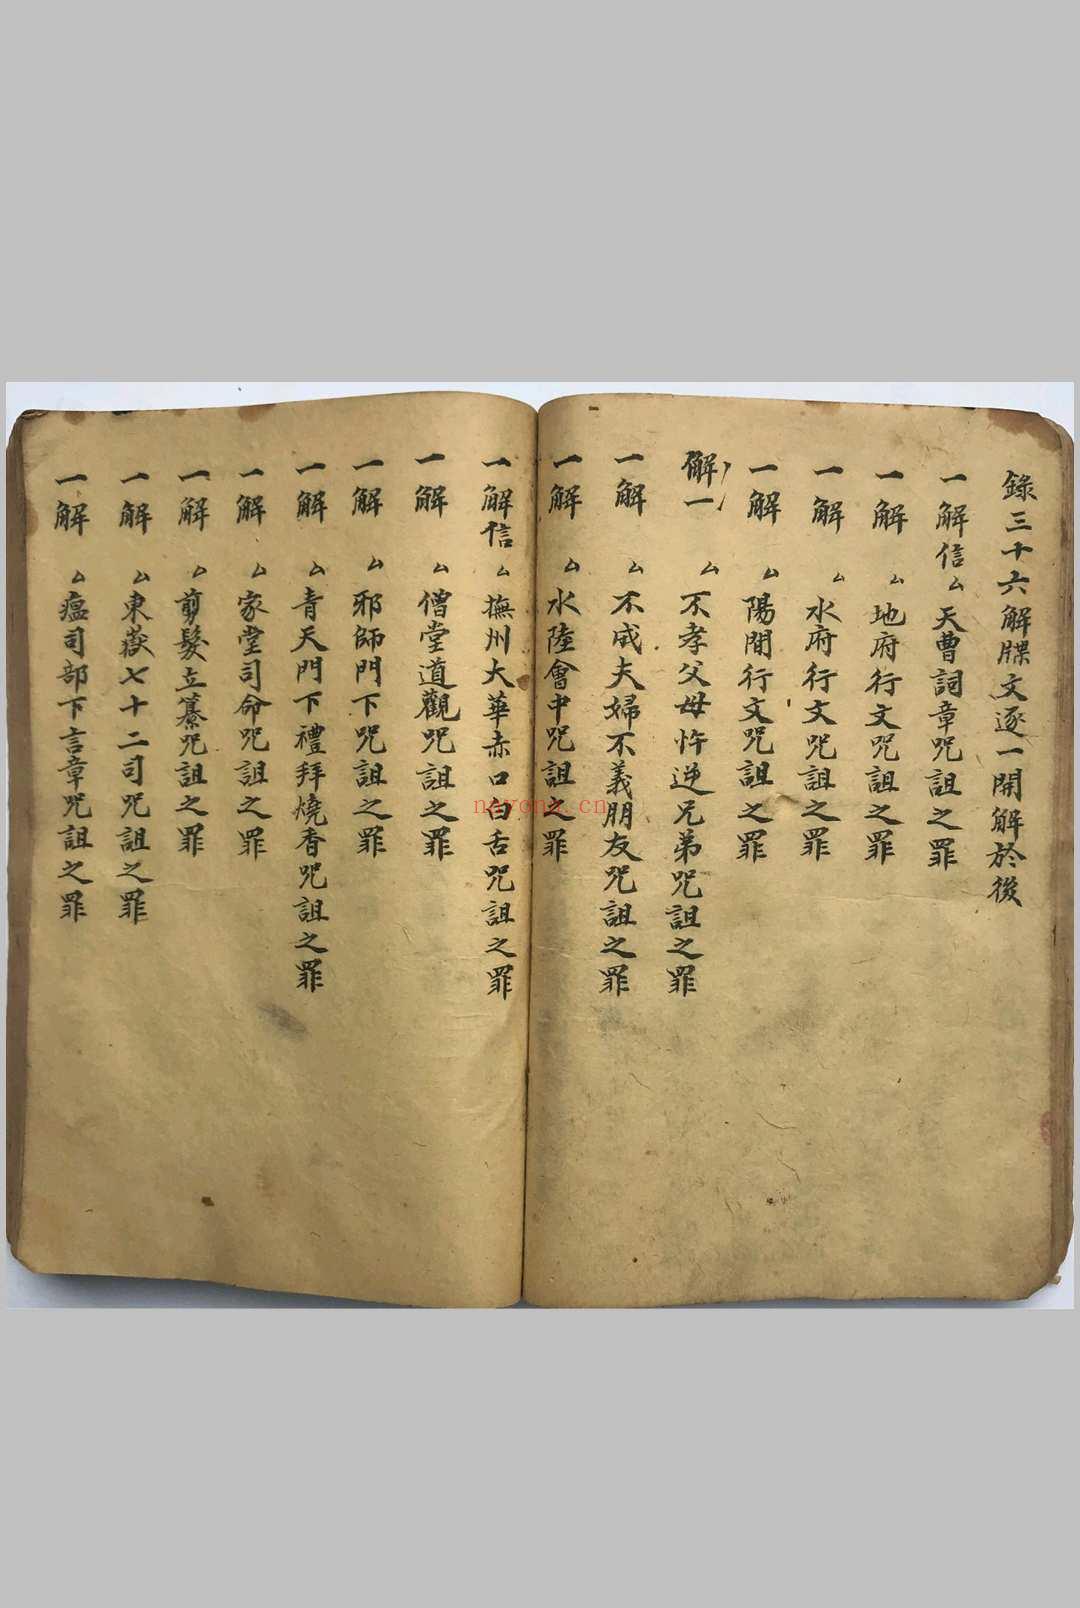 錄三十六解牒文逐一開解於後
一解信厶天曹詞章咒詛之罪
一解厶地府行文咒詛之罪
一解厶水府行文咒詛之罪
一解厶陽間行文咒詛之罪
解一厶不孝父母忤逆兄弟咒詛之罪
一解厶不成夫婦不義朋友咒詛之罪
一解厶水陸會中咒詛之罪
一解信厶撫州大華赤口白舌咒詛之罪
一解厶僧堂道觀咒詛之罪
一解厶邪師門下咒詛之罪
一解厶青天門下禮拜燒香咒詛之罪
一解厶家堂司命咒詛之罪
一解厶剪髮立纂咒詛之罪
一解厶東嶽七十二司咒詛之罪
一解厶瘟司部下言章咒詛之罪
nayona.cn